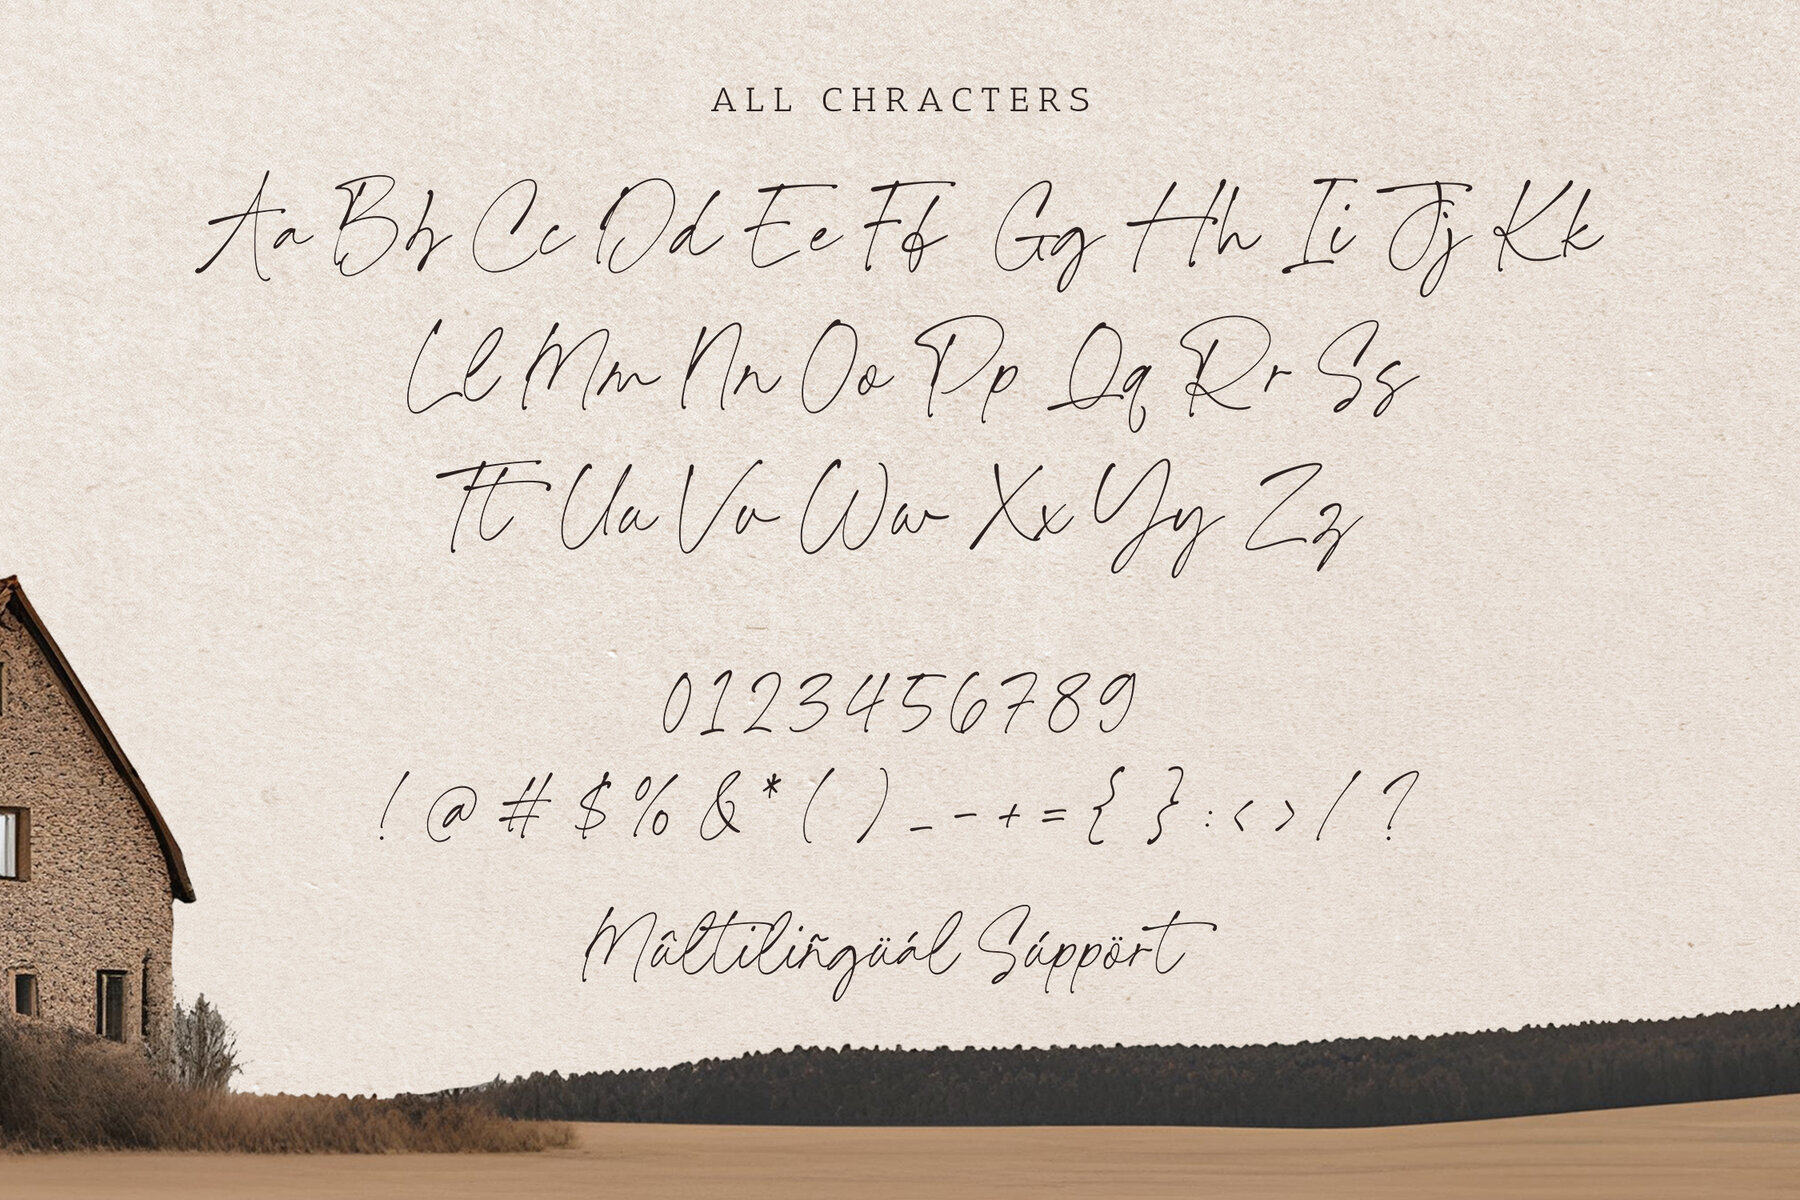 ALL CHRACTERS
Aa Bb Cc Dd Ee Ff Gg Hh Ii Jj Kk
Ll Mm Nn Oo Pp Qq Rr Ss
Tt Uu Vv Ww Xx Yy Zz
0123456789
! @ # $ % & * ( ) _ - + = { } : < > / ?
Mûltiliñgüál Súppört